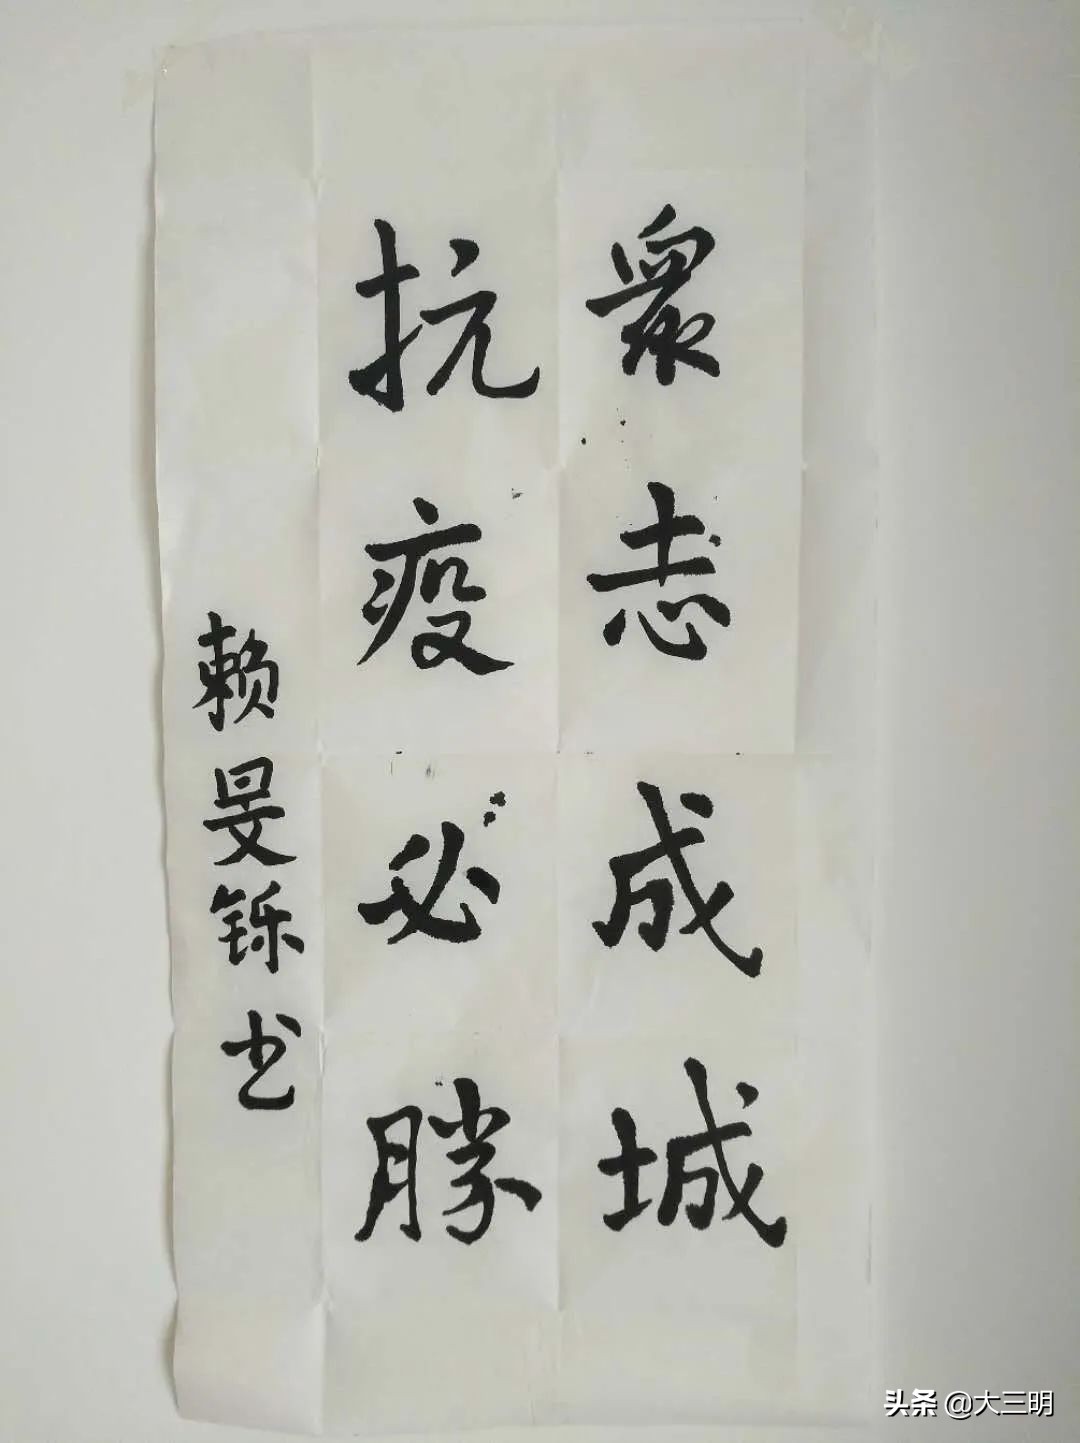 眾志成城
抗疫必勝
赖旻铄书
头条 @大三明